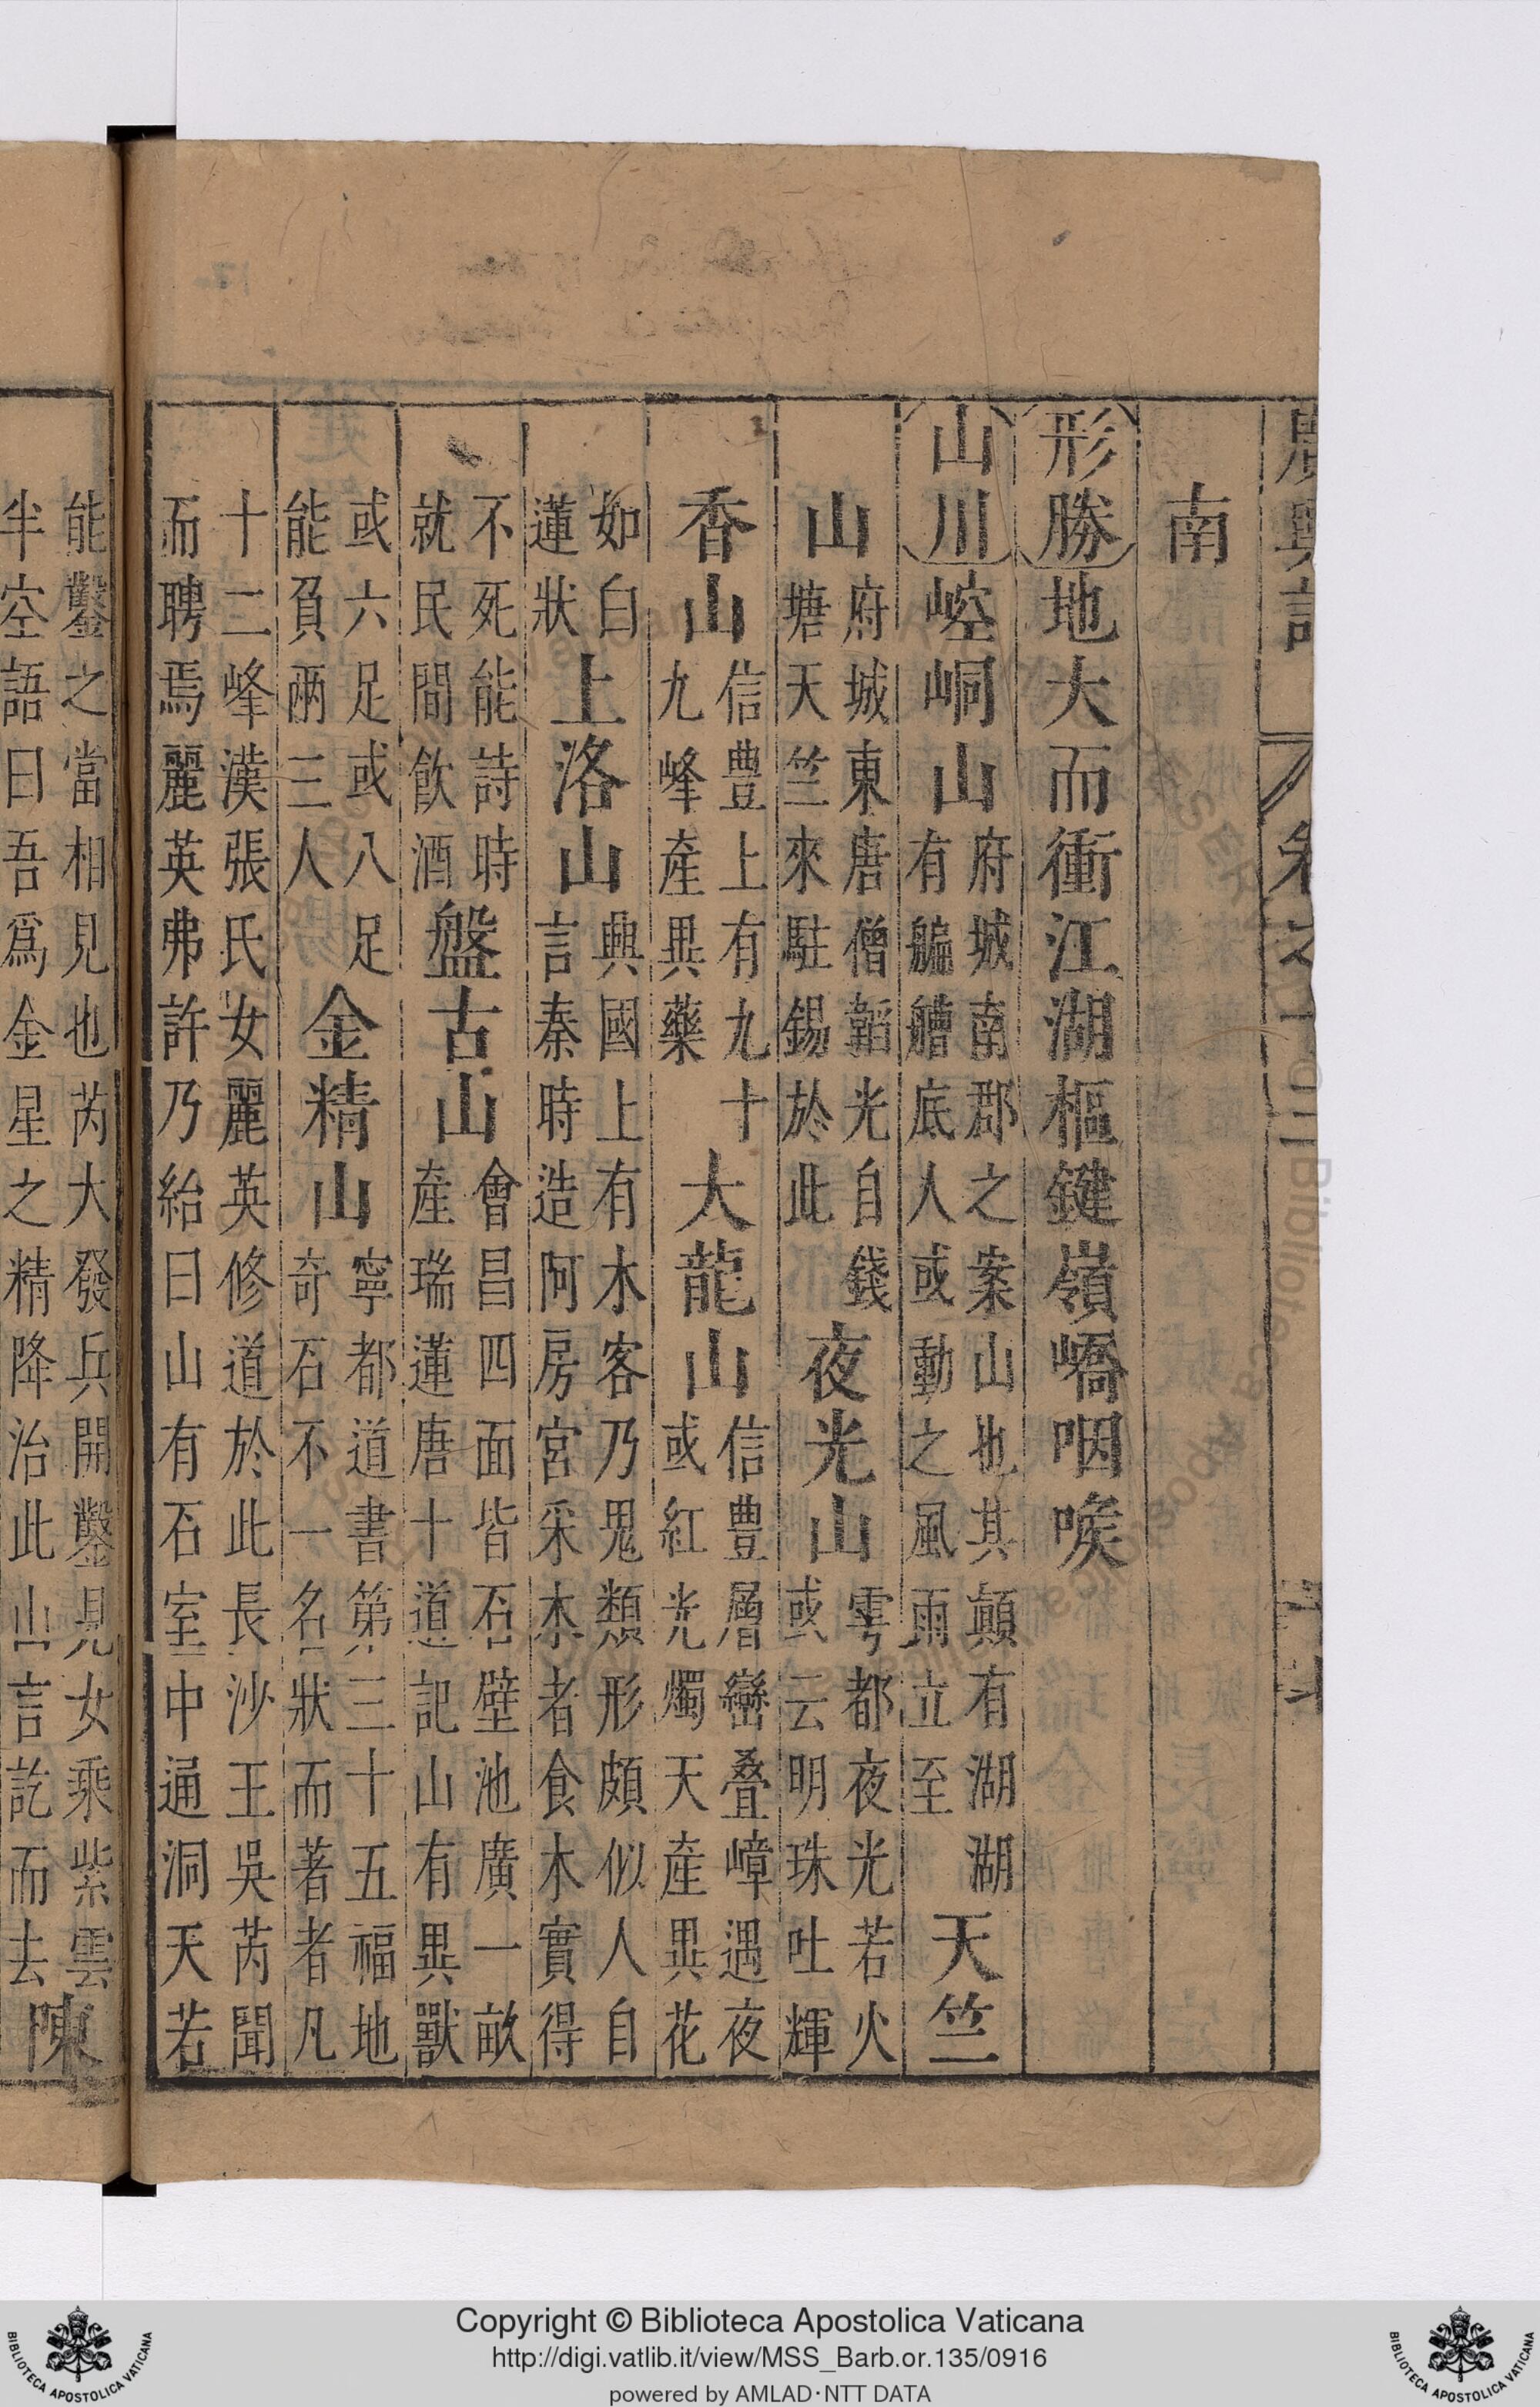 廣輿記 卷之十二
南
形勝地大而衝江湖樞鍵嶺嶠咽喉
山川崆峒山府城南郡之案山也其顛有湖湖有艑艚底人或動之風雨立至天竺
山府城東唐僧韜光自錢塘天竺來駐錫於此夜光山雩都夜光若火或云明珠吐輝
香山信豊上有九十九峰產異藥大龍山信豊層巒叠嶂遇夜或紅光燭天產異花
如白蓮狀上洛山興國上有木客乃鬼類形頗似人自言秦時造阿房宮采木者食木實得
不死能詩時就民間飲酒盤古山會昌四面皆石壁池廣一畝產瑞蓮唐十道記山有異獸
或六足或八足能負兩三人金精山寧都道書第三十五福地奇石不一名狀而著者凡
十二峰漢張氏女麗英修道於此長沙王吳芮聞
而聘焉麗英弗許乃紿曰山有石室中通洞天若
能鑿之當相見也芮大發兵開鑿見女乘紫雲
半空語曰吾爲金星之精降治此山言訖而去陳
Copyright © Biblioteca Apostolica Vaticana
http://digi.vatlib.it/view/MSS_Barb.or.135/0916
powered by AMLAD·NTT DATA
BIBLIOTECA APOSTOLICA VATICANA
BIBLIOTECA APOSTOLICA VATICANA